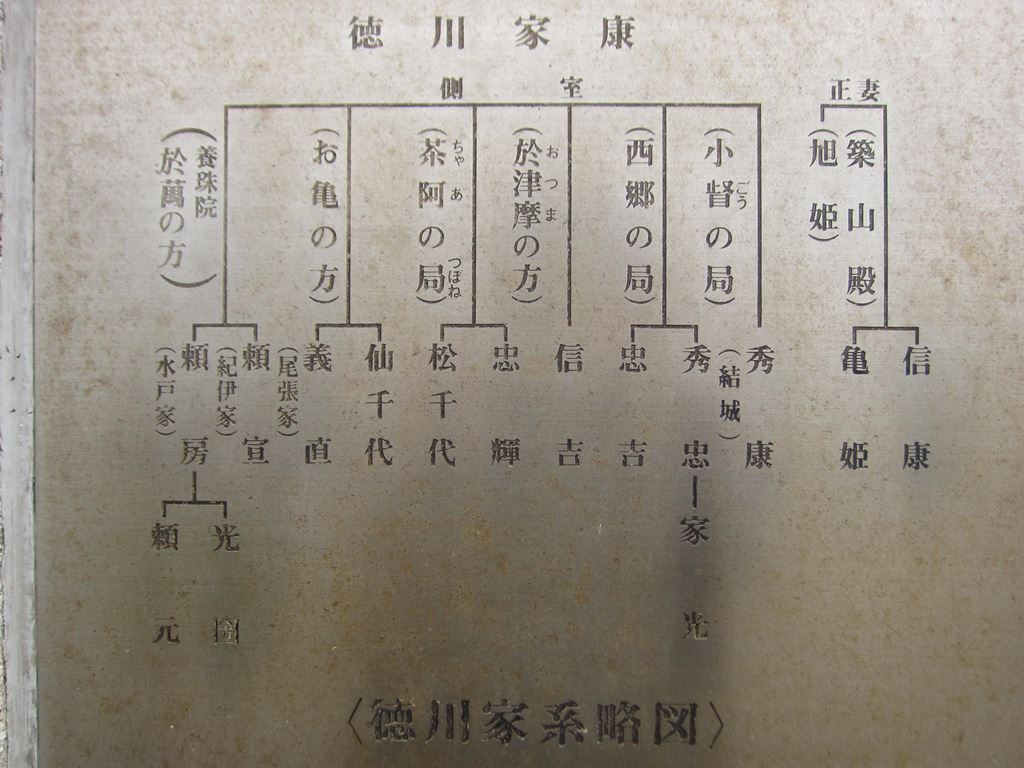 徳川家康
正妻
側室
(築山殿)
(旭姫)
(小督の局)
ごう
(西郷の局)
(於津摩の方)
おつま
(茶阿の局)
ちゃあ
つぼね
(お亀の方)
(養珠院
於萬の方)
信康
亀姫
秀康
(結城)
秀忠
家光
忠吉
信吉
忠輝
松千代
仙千代
義直
(尾張家)
頼宣
(紀伊家)
頼房
(水戸家)
光圀
頼元
〈徳川家系略図〉